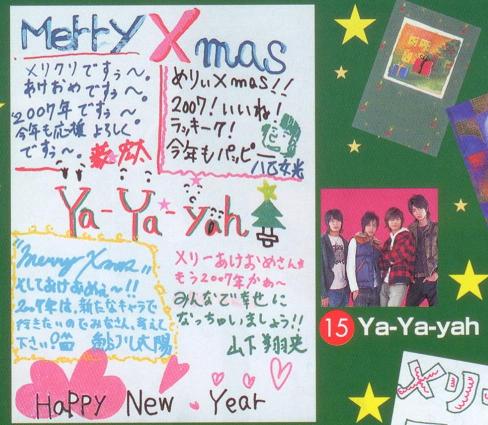 Merry Xmas
メリクリですぅ〜。
あけおめですぅ〜。
2007年ですぅ〜
今年も応援よろしく
ですぅ〜。
薮宏太
めりぃXmas!!
2007!いいね!
ラッキーク!
今年もハッピー
八乙女光
Ya-Ya-yah
"Merry Xmas"
そしてあけおめぇ〜!!
2007年は、新たなキャラで
行きたいのでみなさん、考えて
下さい
鮎川太陽
メリーあけおめさんっ
もう2007年かぁ〜
みんなで幸せに
なっちゃいましょう!!
山下翔央
HaPPY New Year
15 Ya-Ya-yah
メリー